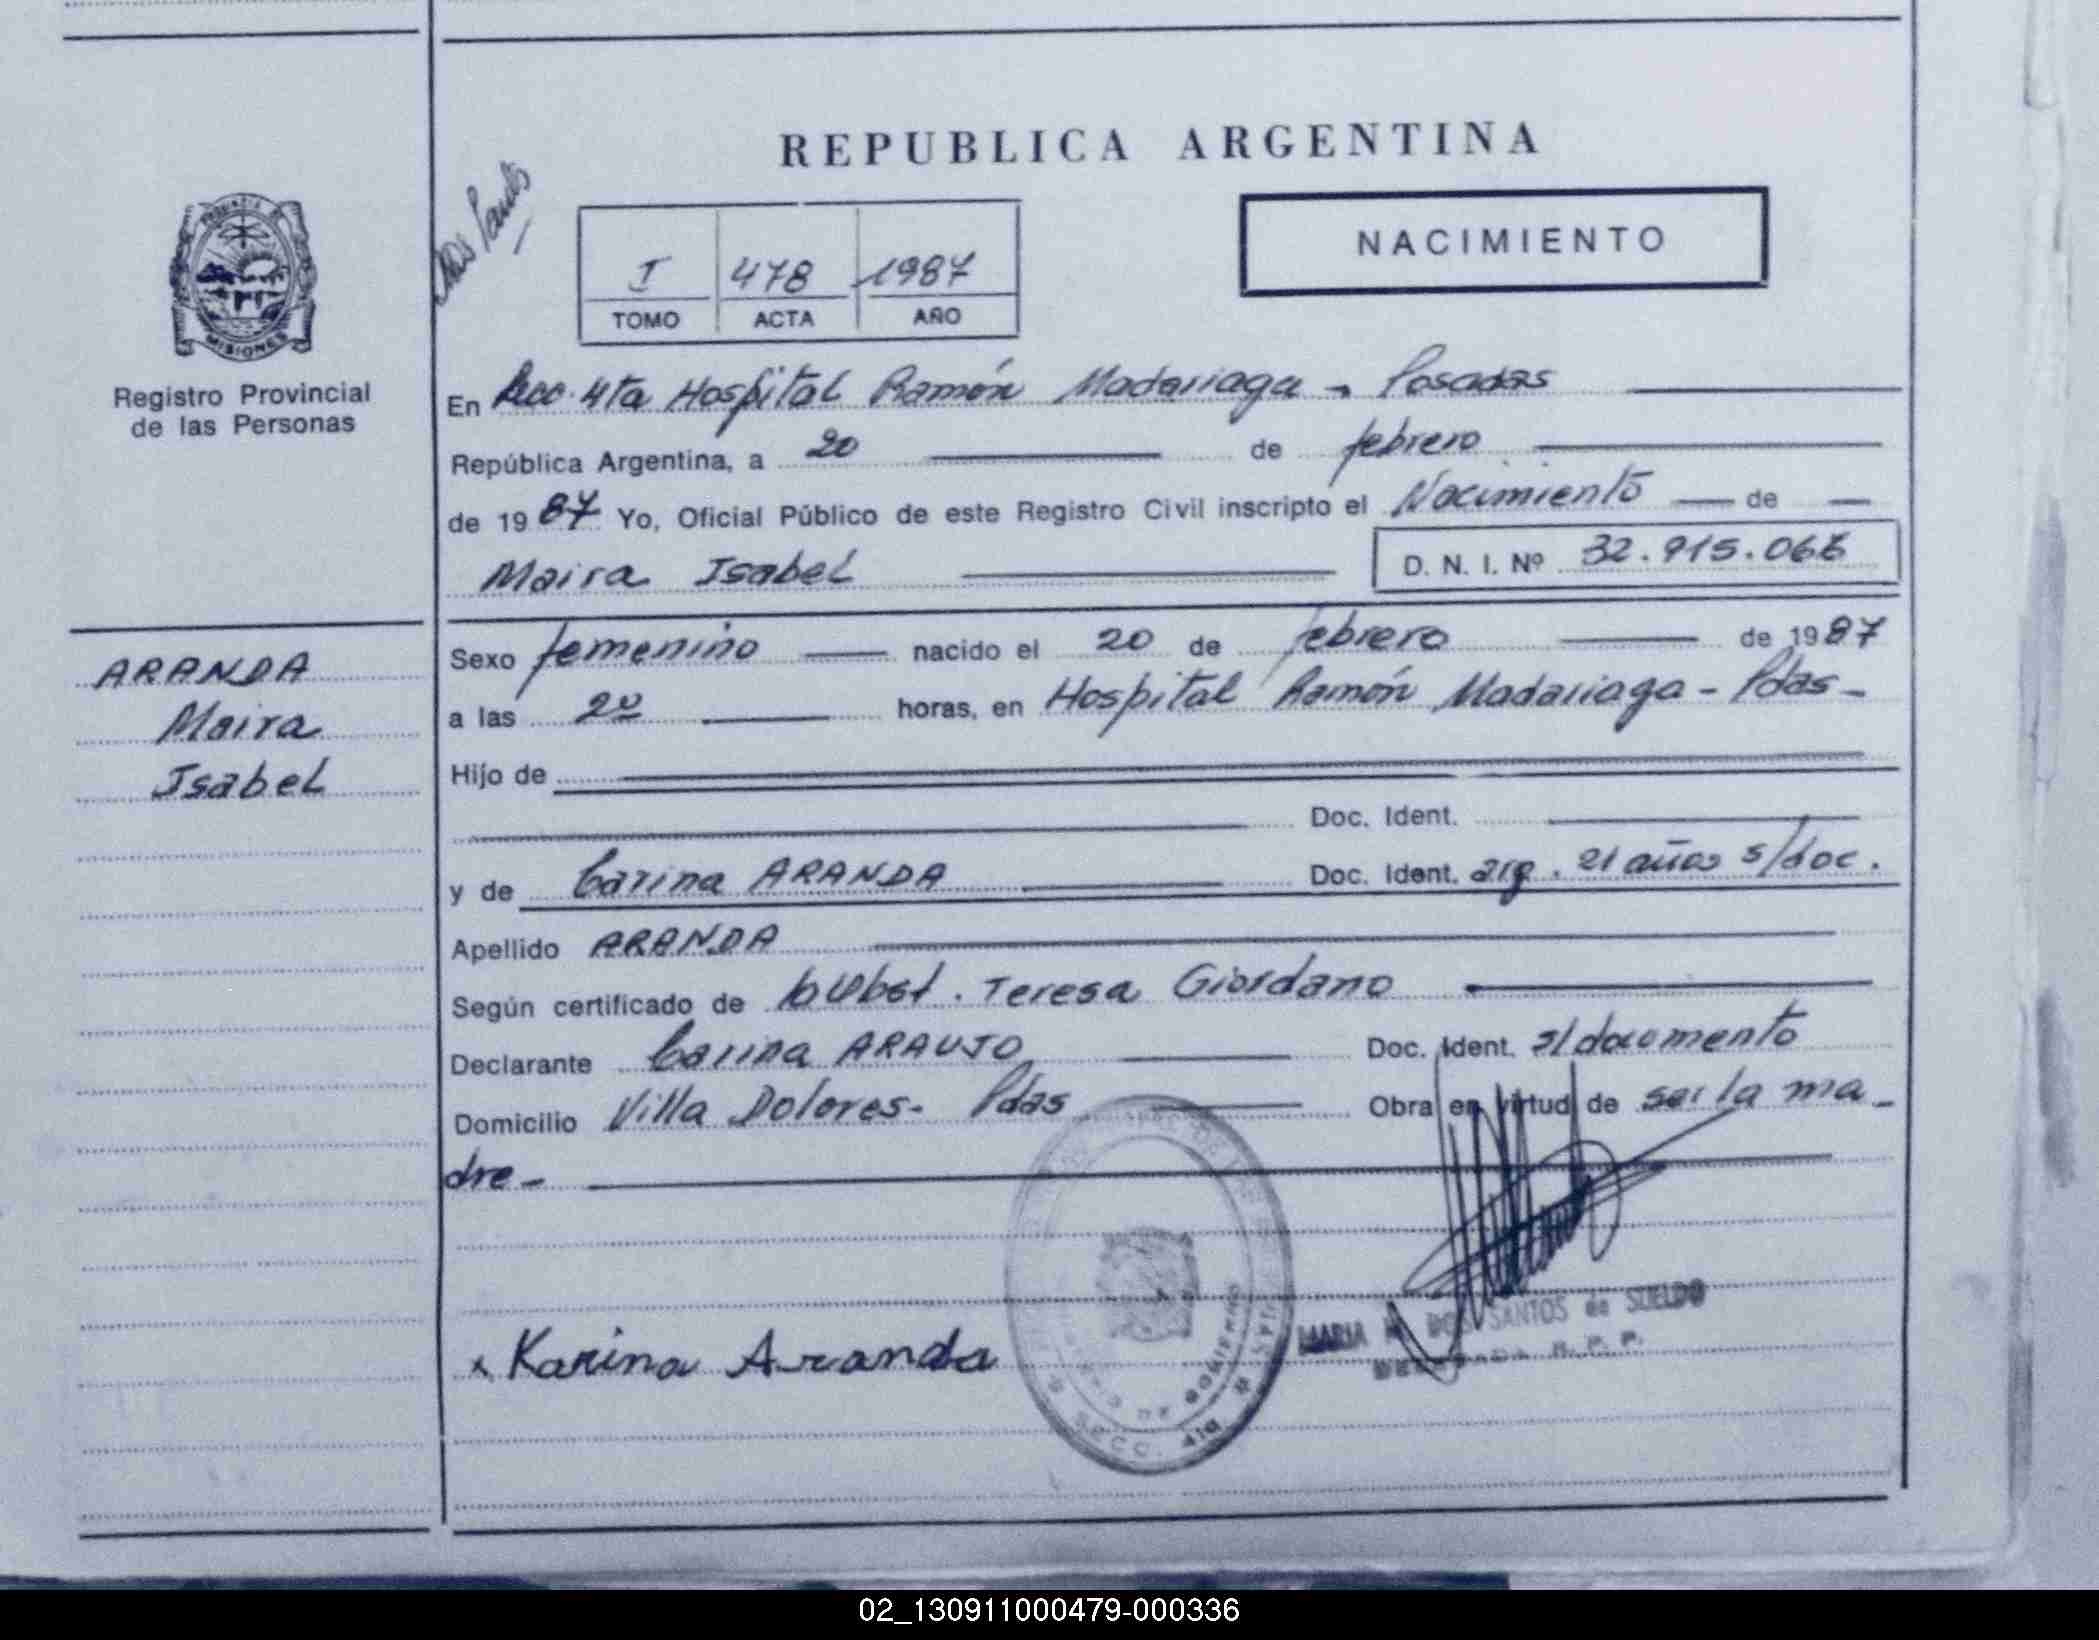 REPUBLICA ARGENTINA
NACIMIENTO
I 478 1987
TOMO ACTA AÑO
PROVINCIA DE
MISIONES
Registro Provincial
de las Personas
ARANDA
Maira
Isabel
En Secc. 4ta Hospital Ramón Madariaga - Posadas
República Argentina, a 20 de febrero
de 1987 Yo, Oficial Público de este Registro Civil inscripto el Nacimiento de
Maira Isabel D. N. I. Nº 32.915.066
Sexo femenino nacido el 20 de febrero de 1987
a las 20 horas, en Hospital Ramón Madariaga - Pdas -
Hijo de
Doc. Ident.
y de Carina ARANDA Doc. Ident. arg. 21 años s/doc.
Apellido ARANDA
Según certificado de Obst. Teresa Giordano
Declarante Carina ARAUJO Doc. Ident. s/documento
Domicilio Villa Dolores - Pdas Obra en virtud de ser la ma-
dre -
x Karina Aranda
MARIA DOS SANTOS de SUELDO
DELEGADA R. P. P.
SECC. 4ta
02_130911000479-000336